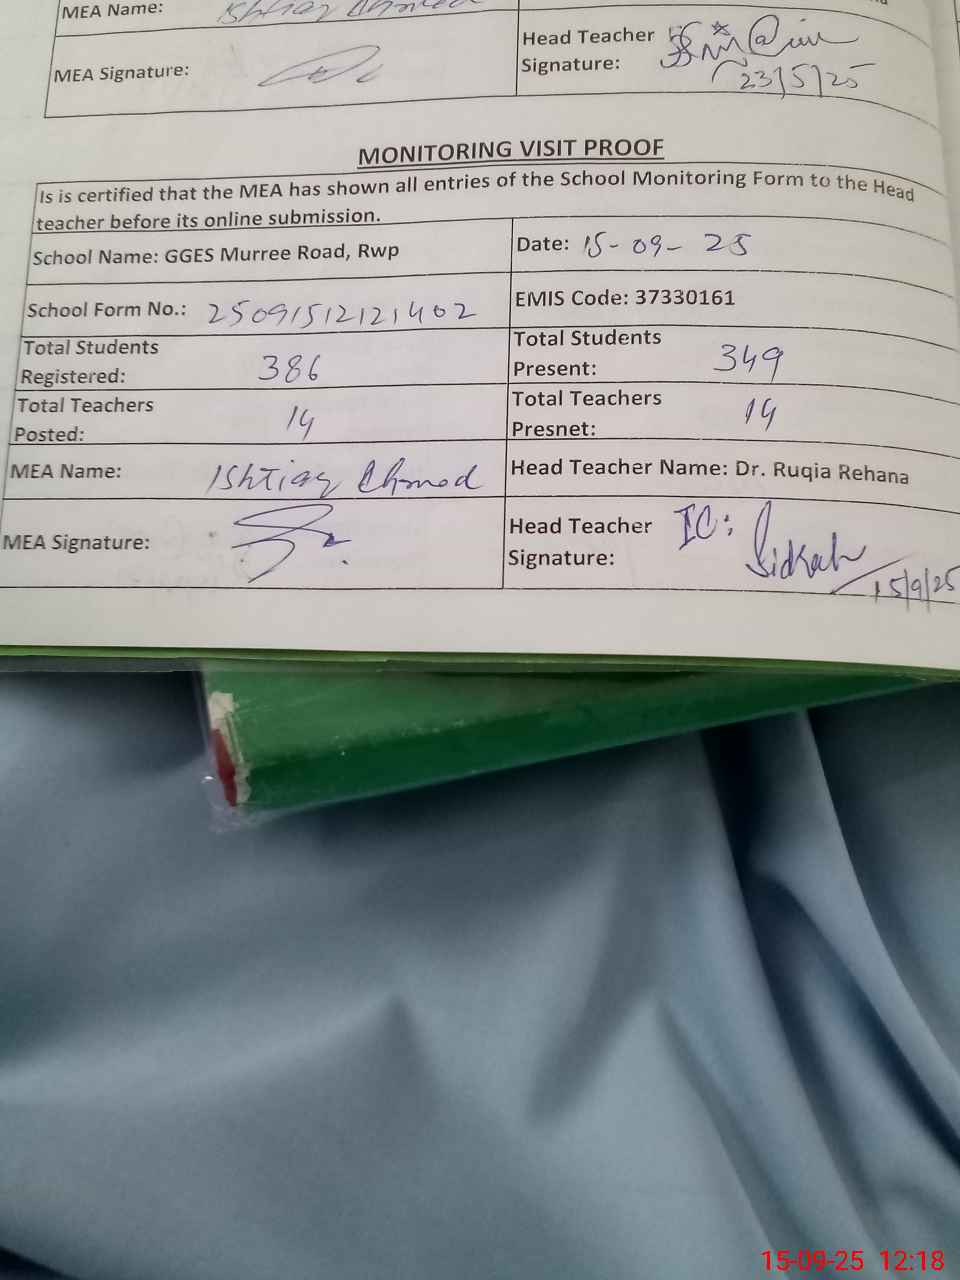 MEA Name: Ishtiaq Ahmed
MEA Signature:
Head Teacher
Signature:
23/5/25
MONITORING VISIT PROOF
Is is certified that the MEA has shown all entries of the School Monitoring Form to the Head
teacher before its online submission.
School Name: GGES Murree Road, Rwp
Date: 15-09-25
School Form No.: 25091512121402
EMIS Code: 37330161
Total Students
Registered: 386
Total Students
Present: 349
Total Teachers
Posted: 14
Total Teachers
Presnet: 14
MEA Name: Ishtiaq Ahmed
Head Teacher Name: Dr. Ruqia Rehana
MEA Signature:
Head Teacher
Signature: IC: Sidrah
15/9/25
15-09-25 12:18